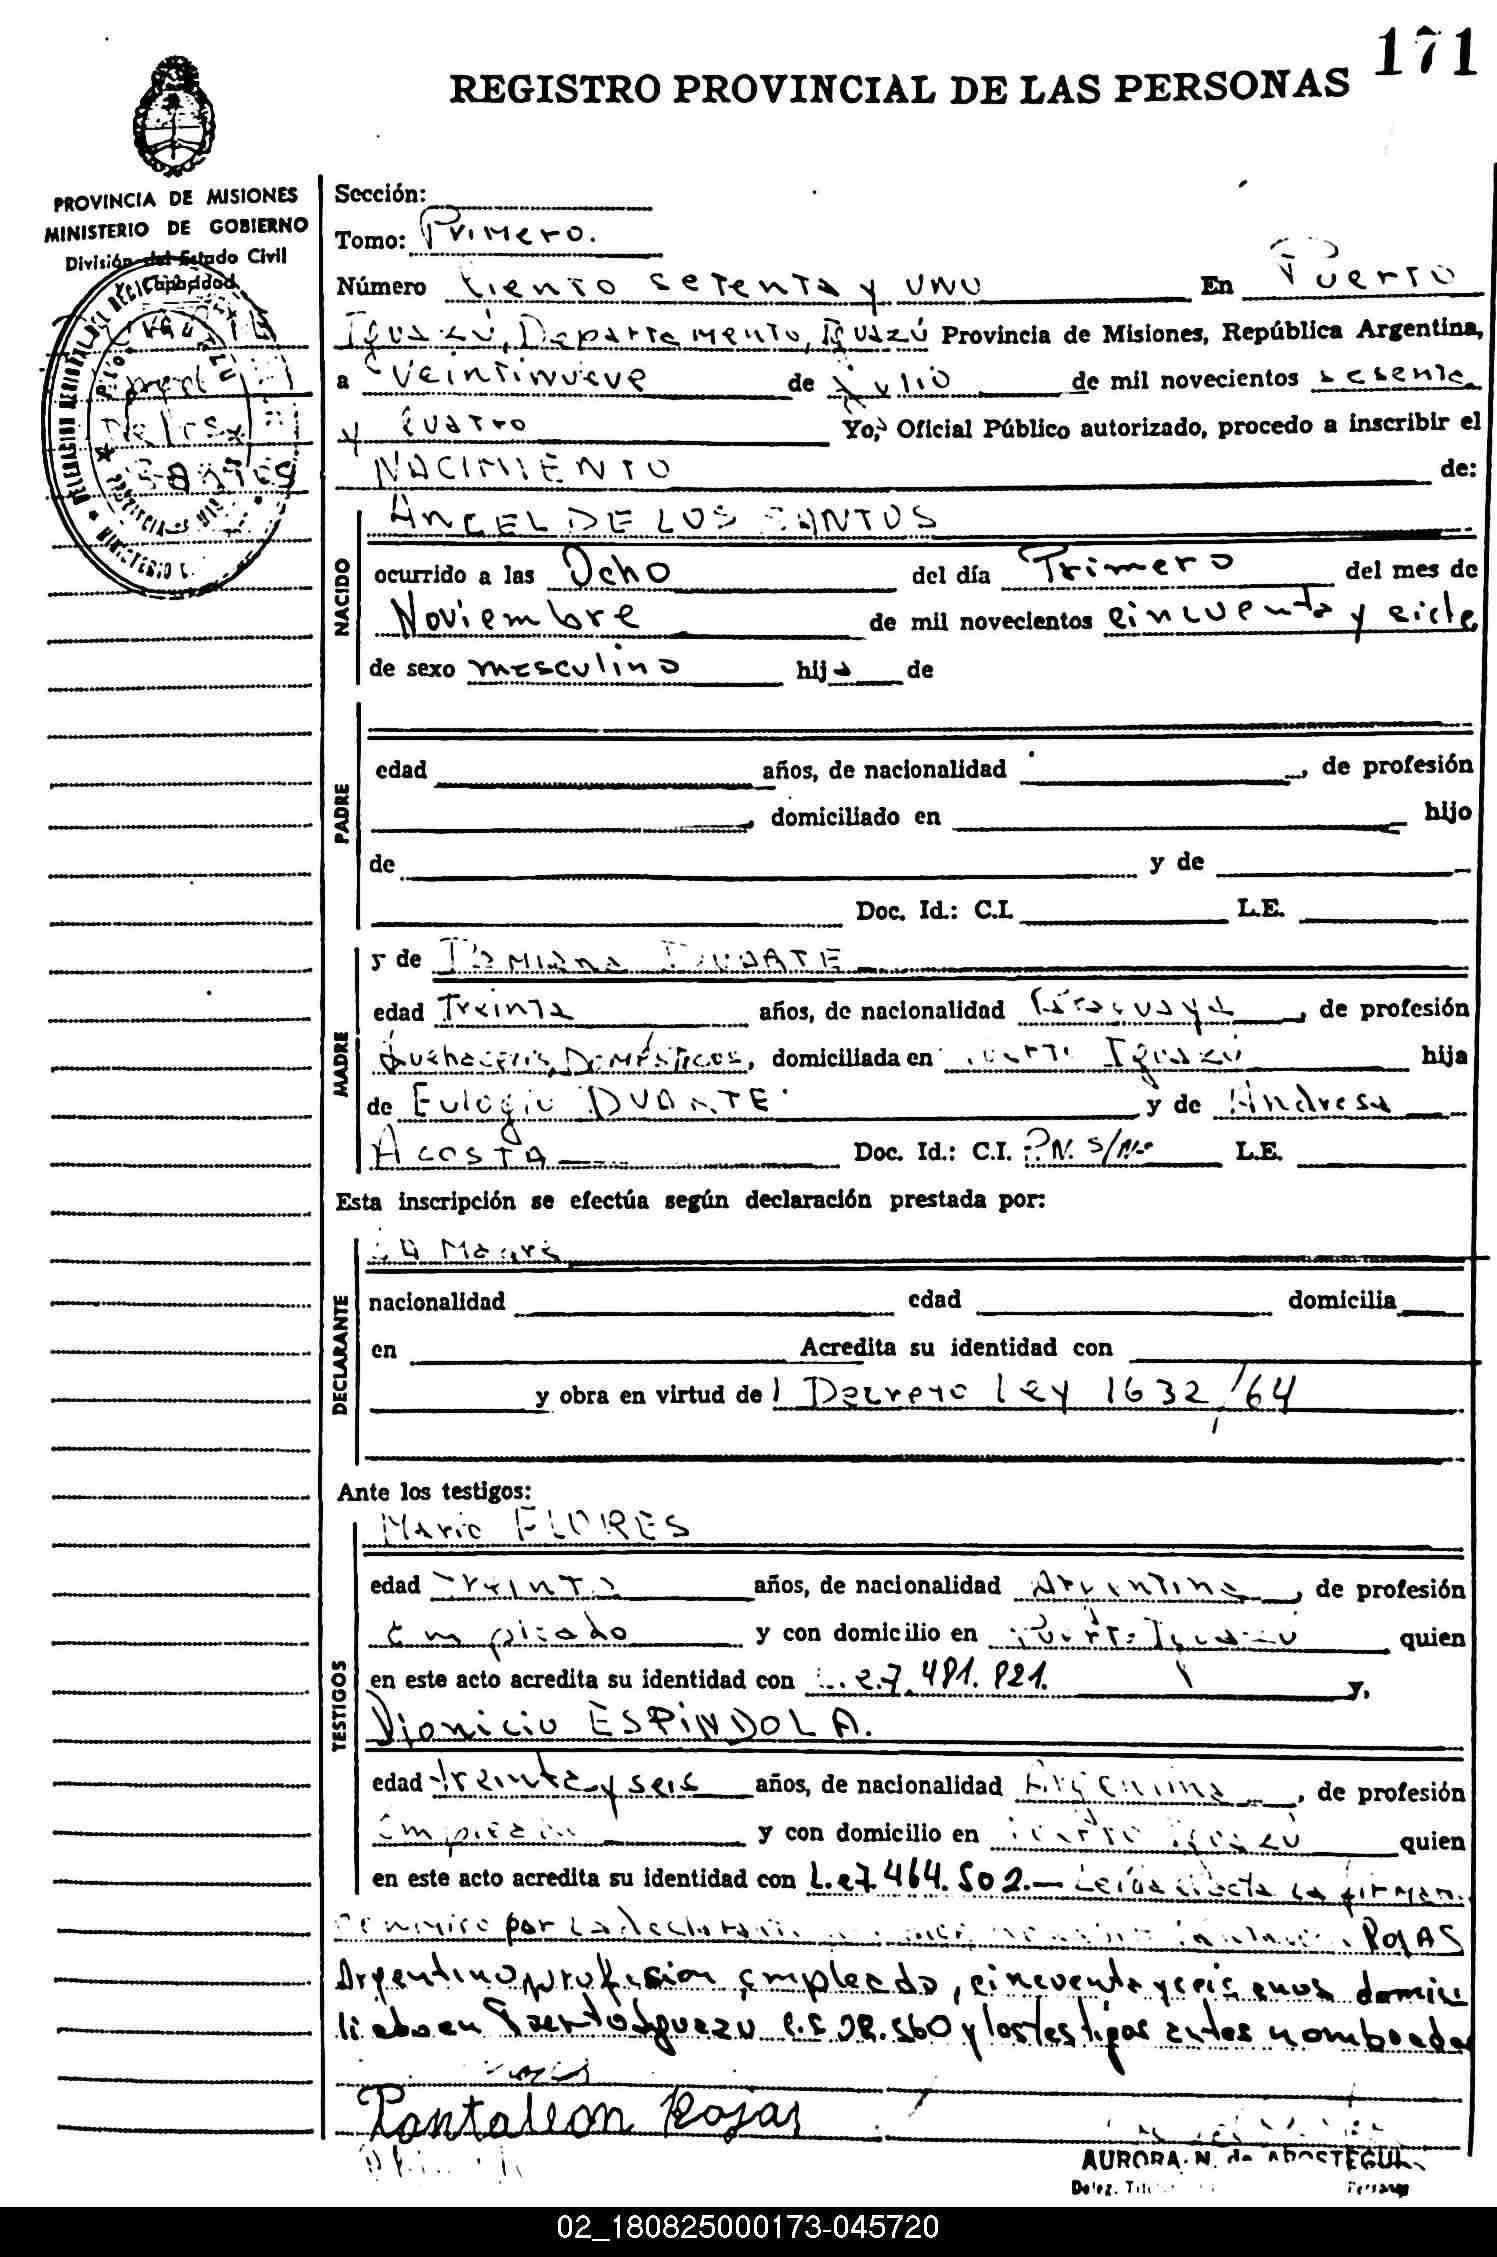 171
REGISTRO PROVINCIAL DE LAS PERSONAS
PROVINCIA DE MISIONES
MINISTERIO DE GOBIERNO
División del Estado Civil
y Capacidad
Sección:
Tomo: Primero.
Número Ciento setenta y uno En Puerto
Iguazú, Departamento, Iguazú Provincia de Misiones, República Argentina,
a Veintinueve de Julio de mil novecientos sesenta
y Cuatro Yo, Oficial Público autorizado, procedo a inscribir el
NACIMIENTO de:
NACIDO
ANGEL DE LOS SANTOS
ocurrido a las Ocho del día Primero del mes de
Noviembre de mil novecientos cincuenta y siete
de sexo masculino hijo de
PADRE
edad años, de nacionalidad , de profesión
, domiciliado en hijo
de y de
Doc. Id.: C.I. L.E.
MADRE
y de Damiana DUARTE
edad Treinta años, de nacionalidad Paraguaya, de profesión
Quehaceres Domésticos, domiciliada en Puerto Iguazú hija
de Eulogio DUARTE y de Andresa
Acosta Doc. Id.: C.I. P.N. S/N° L.E.
Esta inscripción se efectúa según declaración prestada por:
DECLARANTE
La Madre
nacionalidad edad domicilia
en Acredita su identidad con
y obra en virtud de l Decreto ley 1632/64
Ante los testigos:
TESTIGOS
Mario FLORES
edad Treinta años, de nacionalidad Argentina, de profesión
Empleado y con domicilio en Puerto Iguazú quien
en este acto acredita su identidad con L.e.7.481.821. y,
Dionicio ESPINDOLA.
edad treinta y seis años, de nacionalidad Argentina, de profesión
Empleado y con domicilio en Puerto Iguazú quien
en este acto acredita su identidad con L.e.7.464.502.— Leída el acta la firman
conmigo por la declarante ROJAS
Argentino profesion empleado, cincuenta y seis anos domici
liado en Puerto Iguazu y los testigos antes nombrados
Pantaleon Rojas
AURORA N. de AROSTEGUI
02_180825000173-045720